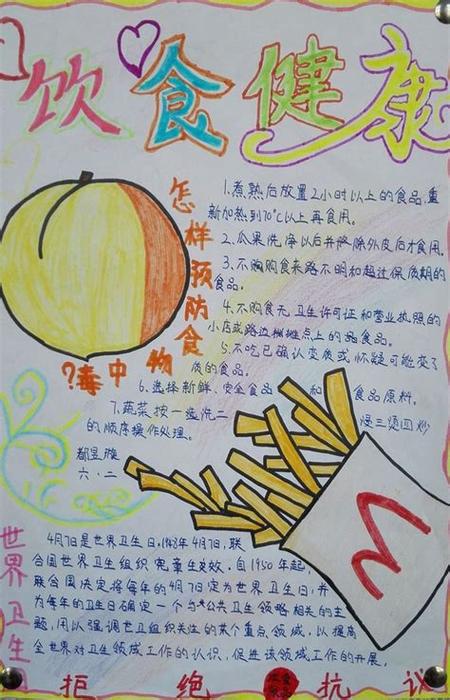 饮食健康
怎样预防食
物中毒?
1.煮熟后放置2小时以上的食品,重
新加热到70℃以上再食用。
2.瓜果洗净以后并除外皮后才食用。
3.不购食来路不明和超过保质期的
食品。
4.不购食无卫生许可证和营业执照的
小店或路边摊点上的食品。
5.不吃已确认变质或怀疑可能变了
质的食品。
6.选择新鲜、安全食品和食品原料。
7.蔬菜按一选洗二浸三烫四炒
的顺序操作处理。
都昱璇
六、二
世界卫生
4月7日是世界卫生日,1948年4月7日,联
合国世界卫生组织宪章生效。自1950年起,
联合国决定将每年的4月7日定为世界卫生日,并
为每年的卫生日确定一个与公共卫生领域相关的主
题,用以强调世卫组织关注的某个重点领域,以提高
全世界对卫生领域工作的认识,促进该领域工作的开展。
拒绝抗议